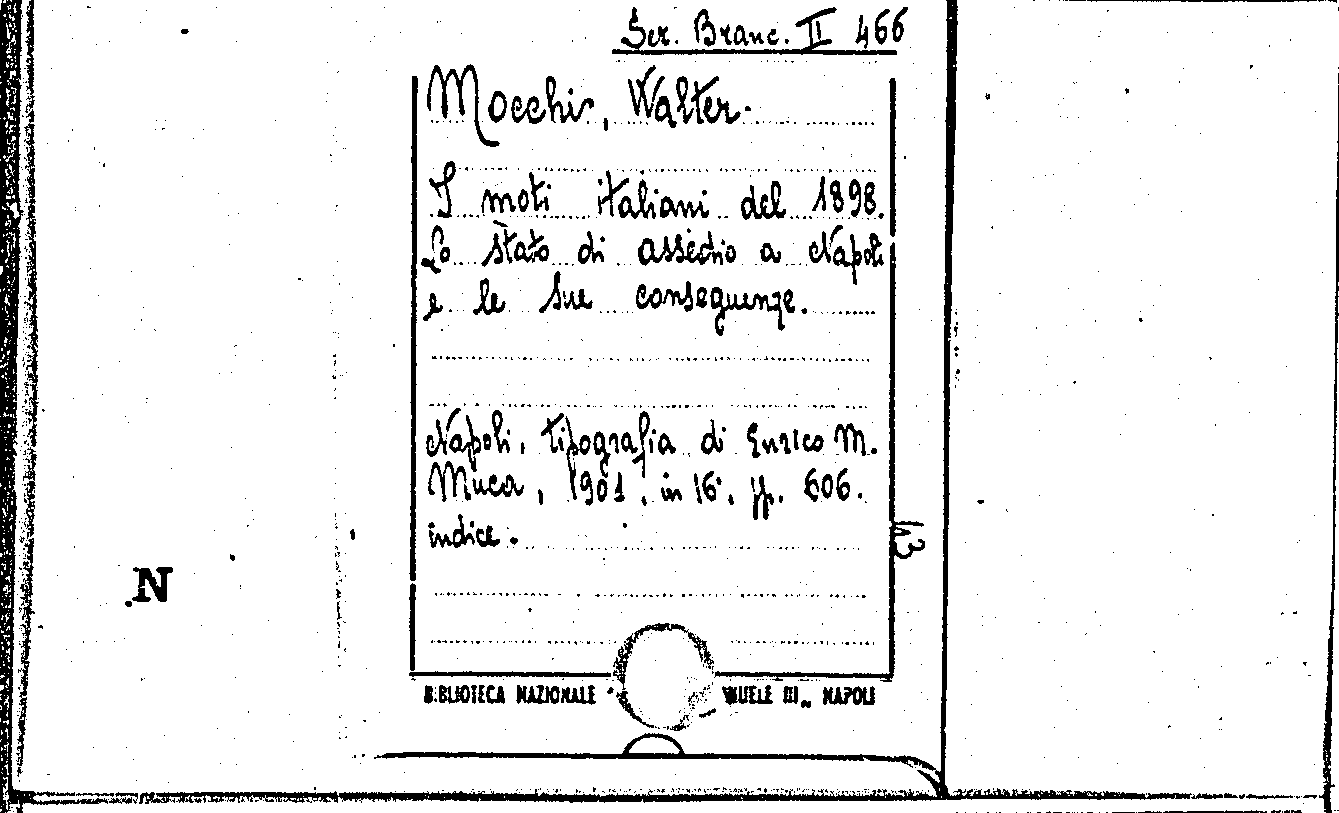 Ser. Branc. II 466
Mocchi, Walter.
I moti italiani del 1898.
Lo stato di assedio a Napoli
e le sue conseguenze.
Napoli, tipografia di Enrico M.
Muca, 1901, in 16°, pp. 606.
indice.
43
N
BIBLIOTECA NAZIONALE MUELE III„ NAPOLI